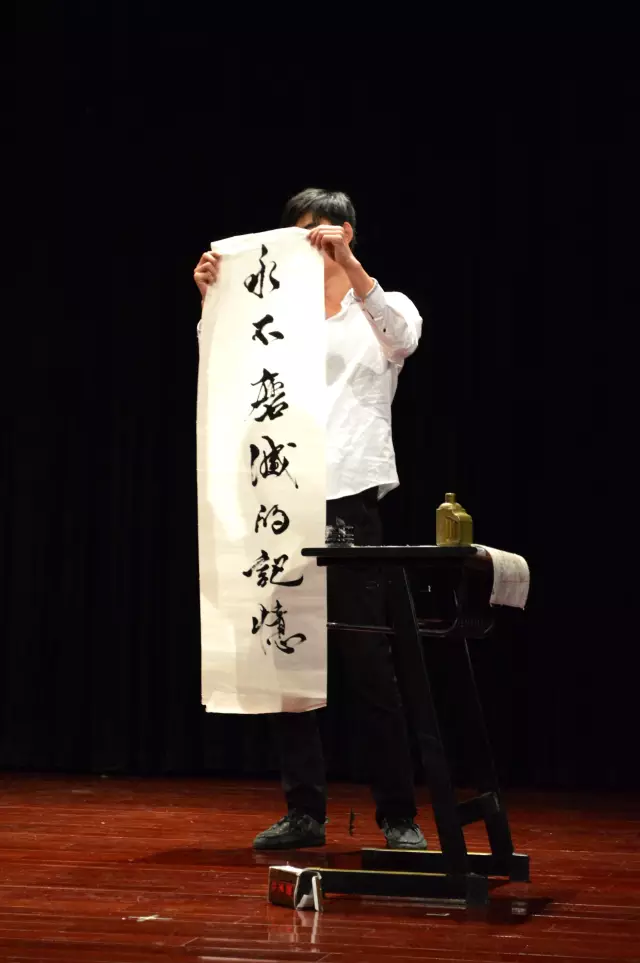 永不磨滅的記憶